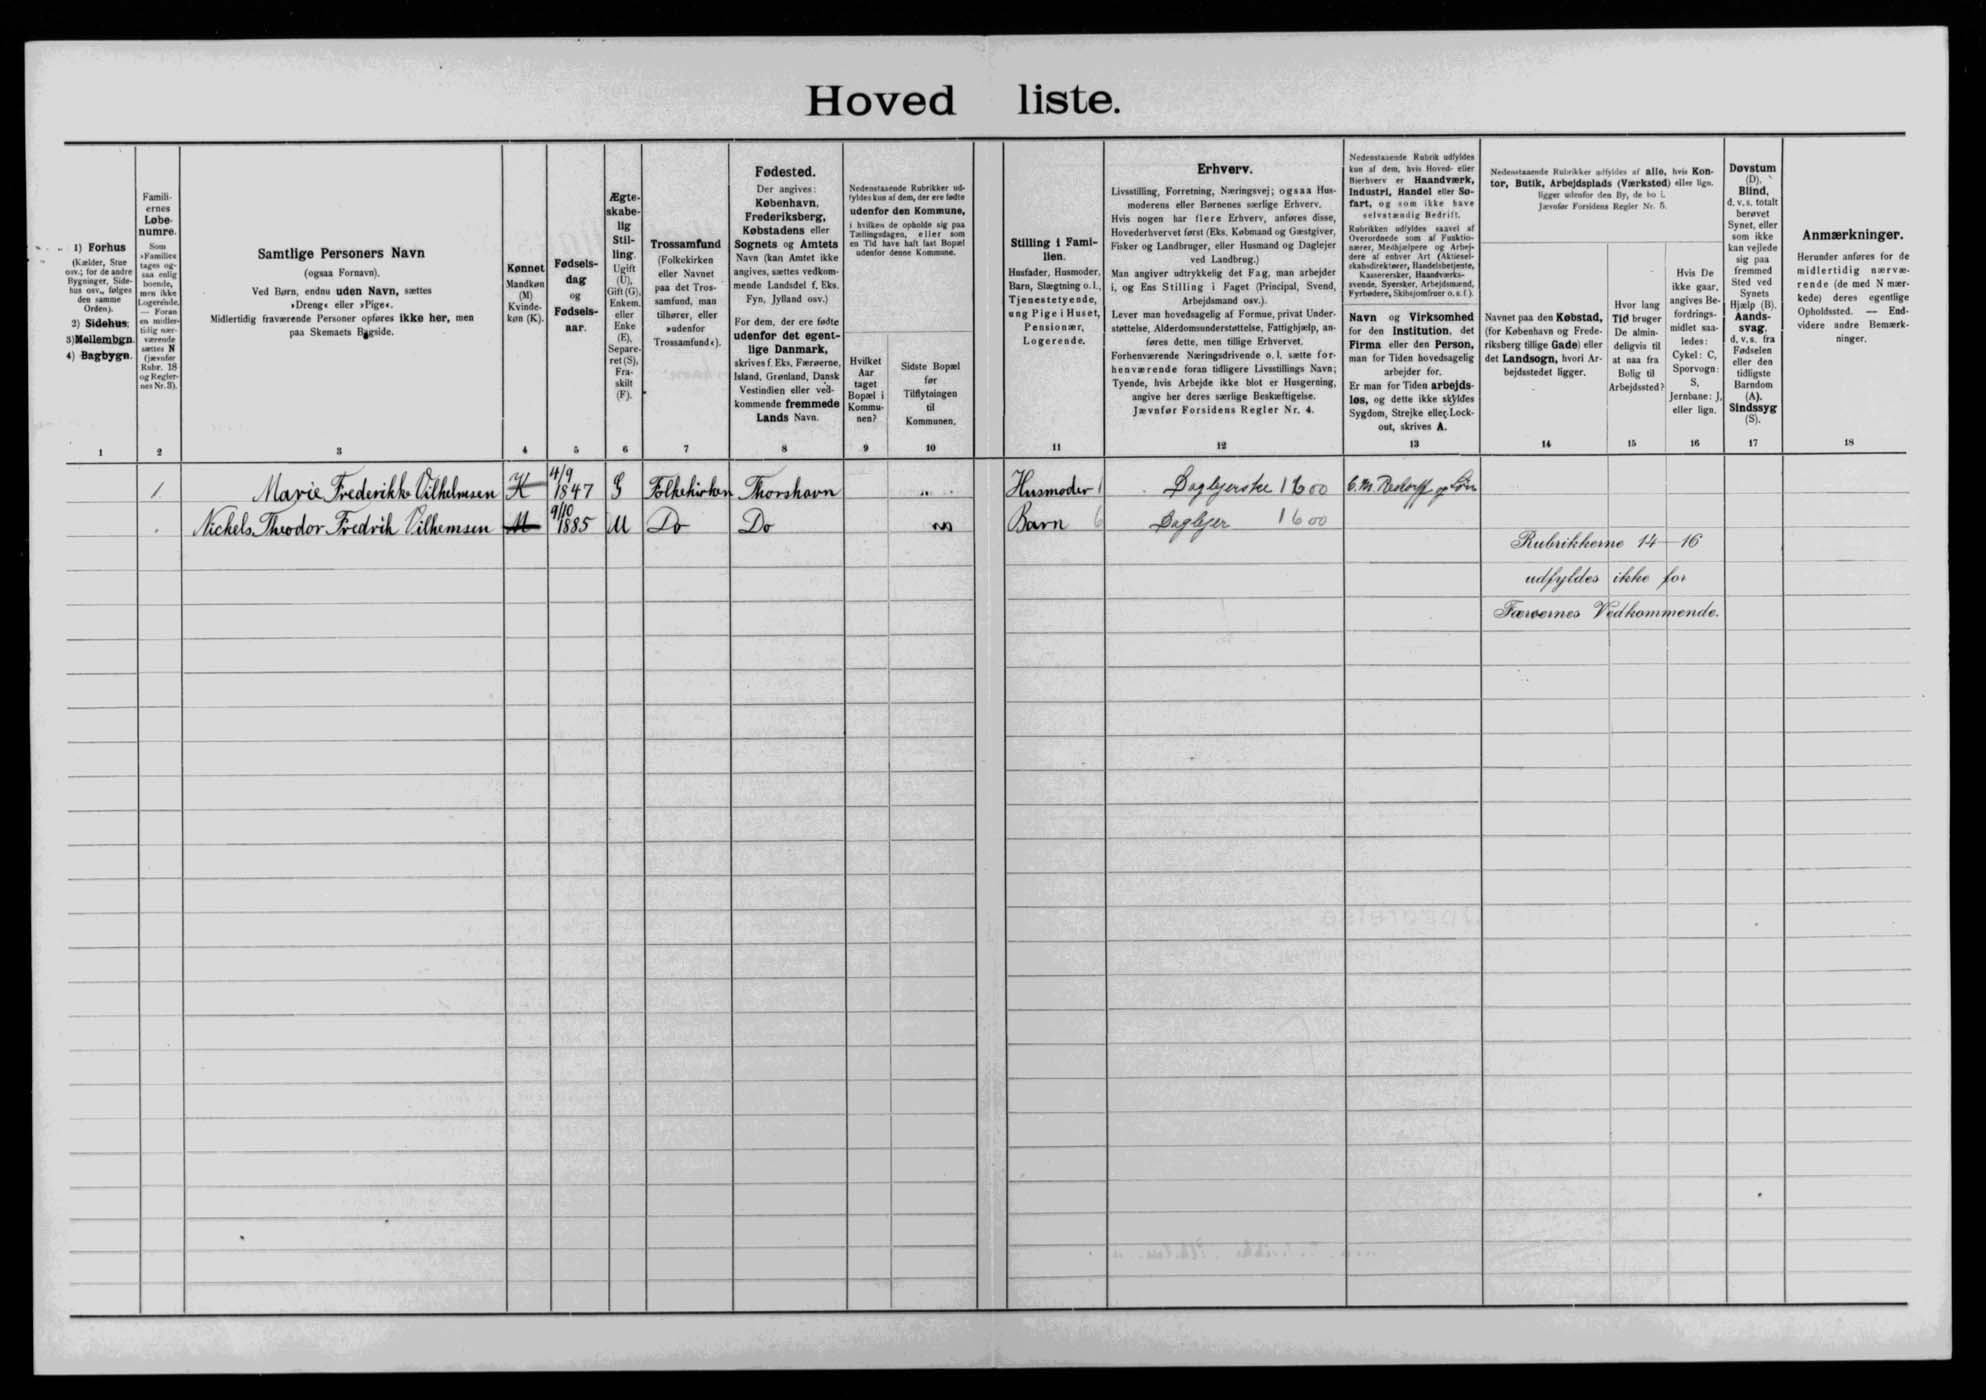 Hoved liste.
1) Forhus
(Kælder, Stue
osv.; for de andre
Bygninger, Side-
hus osv., følges
den samme
Orden).
2) Sidehus;
3) Mellembgn.
4) Bagbygn.
1
Famili-
ernes
Løbe-
numre.
Som
»Familie«
tages og-
saa enlig
boende,
men ikke
Logerende.
— Foran
en midler-
tidig nær-
værende
sættes N
(jævnfør
Rubr. 18
og Regler-
nes Nr. 3).
2
Samtlige Personers Navn
(ogsaa Fornavn).
Ved Børn, endnu uden Navn, sættes
»Dreng« eller »Pige«.
Midlertidig fraværende Personer opføres ikke her, men
paa Skemaets Bagside.
3
Kønnet
Mandkøn
(M)
Kvinde-
køn (K).
4
Fødsels-
dag
og
Fødsels-
aar.
5
Ægte-
skabe-
lig
Stil-
ling.
Ugift
(U),
Gift (G),
Enkem.
eller
Enke
(E),
Separe-
ret (S),
Fra-
skilt
(F).
6
Trossamfund
(Folkekirken
eller Navnet
paa det Tros-
samfund, man
tilhører, eller
»udenfor
Trossamfund«).
7
Fødested.
Der angives:
København,
Frederiksberg,
Købstadens eller
Sognets og Amtets
Navn (kan Amtet ikke
angives, sættes vedkom-
mende Landsdel f. Eks.
Fyn, Jylland osv.)
For dem, der ere fødte
udenfor det egent-
lige Danmark,
skrives f. Eks. Færøerne,
Island, Grønland, Dansk
Vestindien eller ved-
kommende fremmede
Lands Navn.
8
Nedenstaaende Rubrikker ud-
fyldes kun af dem, der ere fødte
udenfor den Kommune,
i hvilken de opholde sig paa
Tællingsdagen, eller som
en Tid have haft fast Bopæl
udenfor denne Kommune.
Hvilket
Aar
taget
Bopæl i
Kommu-
nen?
9
Sidste Bopæl
før
Tilflytningen
til
Kommunen.
10
Stilling i Fami-
lien.
Husfader, Husmoder,
Barn, Slægtning o. l.,
Tjenestetyende,
ung Pige i Huset,
Pensionær,
Logerende.
11
Erhverv.
Livsstilling, Forretning, Næringsvej; ogsaa Hus-
moderens eller Børnenes særlige Erhverv.
Hvis nogen har flere Erhverv, anføres disse,
Hovederhvervet først (Eks. Købmand og Gæstgiver,
Fisker og Landbruger, eller Husmand og Daglejer
ved Landbrug.)
Man angiver udtrykkelig det Fag, man arbejder
i, og Ens Stilling i Faget (Principal, Svend,
Arbejdsmand osv.).
Lever man hovedsagelig af Formue, privat Under-
støttelse, Alderdomsunderstøttelse, Fattighjælp, an-
føres dette, men tillige Erhvervet.
Forhenværende Næringsdrivende o. l. sætte for-
henværende foran tidligere Livsstillings Navn;
Tyende, hvis Arbejde ikke blot er Husgerning,
angive her deres særlige Beskæftigelse.
Jævnfør Forsidens Regler Nr. 4.
12
Nedenstaaende Rubrik udfyldes
kun af dem, hvis Hoved- eller
Bierhverv er Haandværk,
Industri, Handel eller Sø-
fart, og som ikke have
selvstændig Bedrift.
Rubrikken udfyldes saavel af
Overordnede som af Funktio-
nærer, Medhjælpere og Arbej-
dere af enhver Art (Aktiesel-
skabsdirektører, Handelsbetjente,
Kasserersker, Haandværks-
svende, Syersker, Arbejdsmænd,
Fyrbødere, Skibsjomfruer o. s. f.).
Navn og Virksomhed
for den Institution, det
Firma eller den Person,
man for Tiden hovedsagelig
arbejder for.
Er man for Tiden arbejds-
løs, og dette ikke skyldes
Sygdom, Strejke eller Lock-
out, skrives A.
13
Nedenstaaende Rubrikker udfyldes af alle, hvis Kon-
tor, Butik, Arbejdsplads (Værksted) eller lign.
ligger udenfor den By, de bo i.
Jævnfør Forsidens Regler Nr. 5.
Navnet paa den Købstad,
(for København og Frede-
riksberg tillige Gade) eller
det Landsogn, hvori Ar-
bejdsstedet ligger.
14
Hvor lang
Tid bruger
De almin-
deligvis til
at naa fra
Bolig til
Arbejdssted?
15
Hvis De
ikke gaar,
angives Be-
fordrings-
midlet saa-
ledes:
Cykel: C,
Sporvogn:
S,
Jernbane: J,
eller lign.
16
Døvstum
(D),
Blind,
d. v. s. totalt
berøvet
Synet, eller
som ikke
kan vejlede
sig paa
fremmed
Sted ved
Synets
Hjælp (B).
Aands-
svag,
d. v. s. fra
Fødselen
eller den
tidligste
Barndom
(A).
Sindssyg
(S).
17
Anmærkninger.
Herunder anføres for de
midlertidig nærvæ-
rende (de med N mær-
kede) deres egentlige
Opholdssted. — End-
videre andre Bemærk-
ninger.
18
1. Marie Frederikke Vilhelmsen K 4/9 1847 G Folkekirken Thorshavn " Husmoder 1 Daglejerske 1600 C. M. Restorff og Søn
Nickels Theodor Fredrik Vilhemsen M 9/10 1885 U Do Do Barn 6 Daglejer 1600
Rubrikkerne 14-16
udfyldes ikke for
Færøernes Vedkommende.